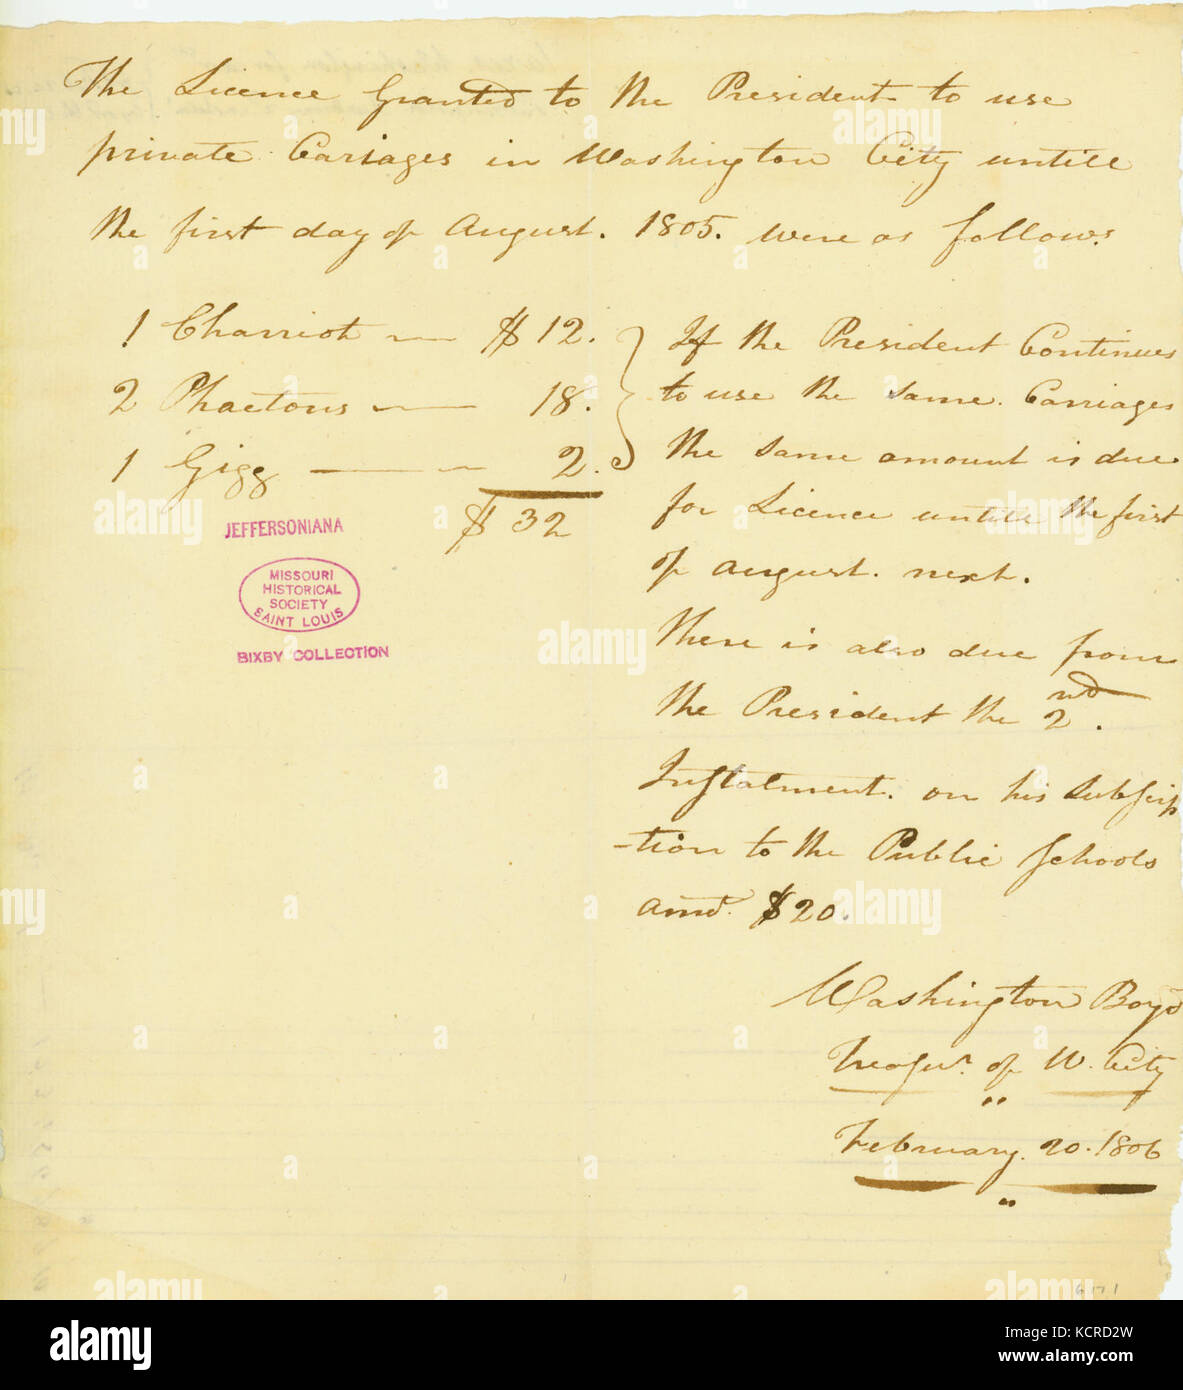 The Licence Granted to the President to use
private Cariages in Washington City untill
the first day of August. 1805. were as follows
1 Charriot $12.
2 Phaetons 18.
1 Gigg 2.
$ 32
If the President Continues
to use the same. Carriages
the same amount is due
for Licence untill the first
of august. next.
There is also due from
the President the 2nd.
Instalment. on his subscrip
-tion to the Public Schools
amt. $20.
Washington Boyd
Treasur. of W. City
"
February. 20. 1806
"
JEFFERSONIANA
MISSOURI
HISTORICAL
SOCIETY
SAINT LOUIS
BIXBY COLLECTION
alamy
Image ID: KCRD2W
www.alamy.com